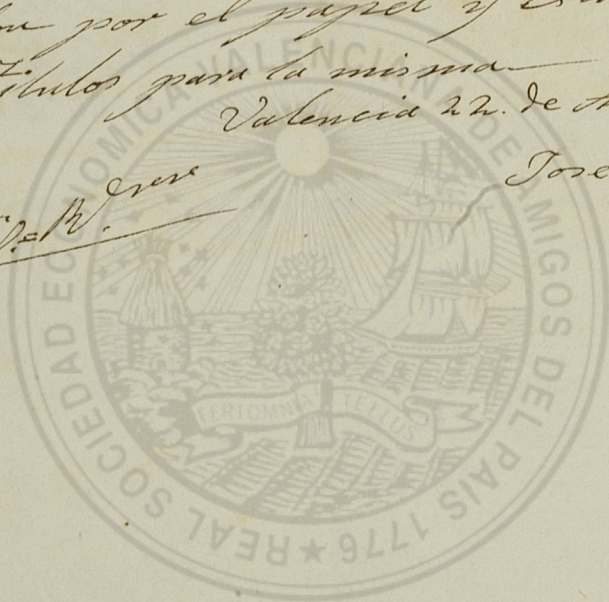 por el papel y
Titulos para la misma
Valencia 22. de
Jose
REAL SOCIEDAD ECONOMICA VALENCIANA DE AMIGOS DEL PAIS 1776
FERT OMNIA TELLUS